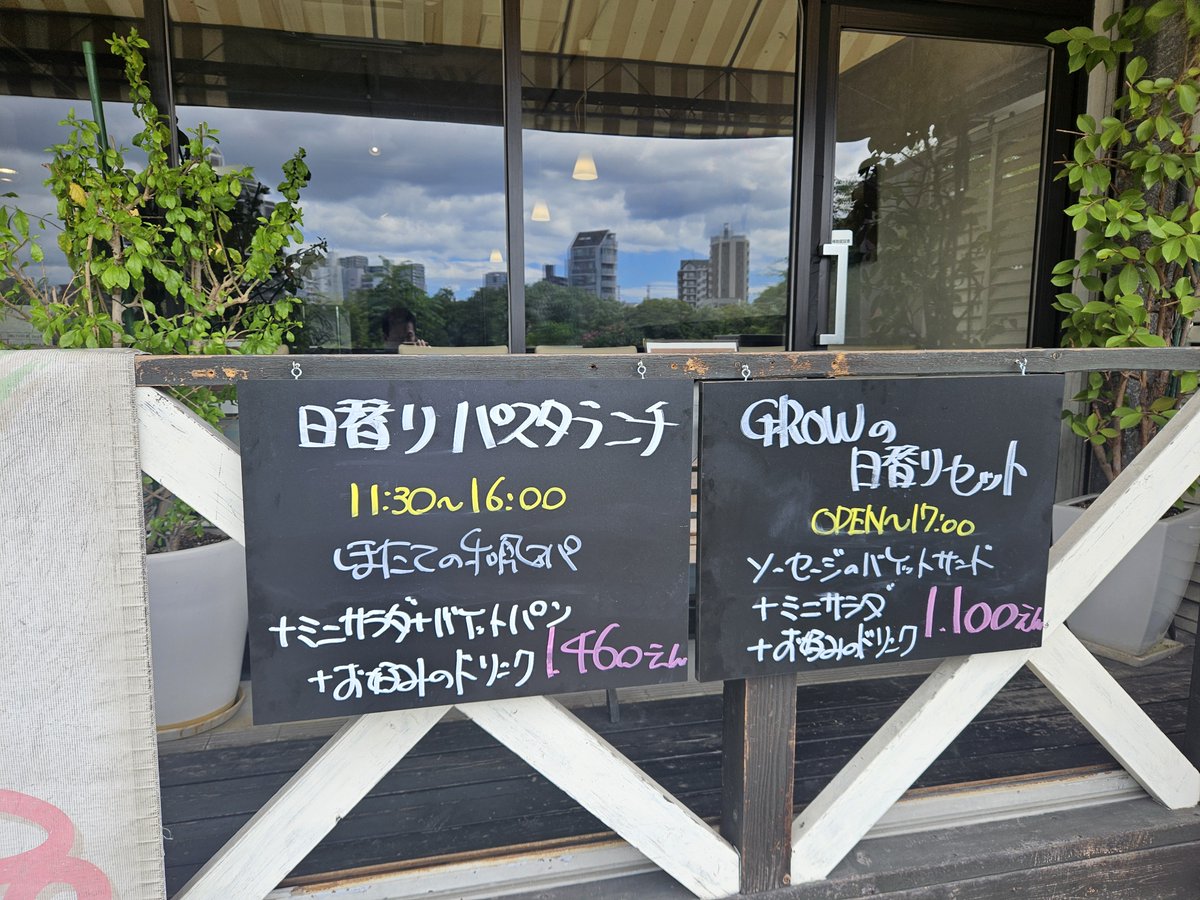 日替りパスタランチ
11:30～16:00
ほたての和風スパ
+ミニサラダ+バゲットパン
+お好みのドリンク 1460えん
GROWの
日替りセット
OPEN～17:00
ソーセージのバゲットサンド
+ミニサラダ
+お好みのドリンク 1.100えん